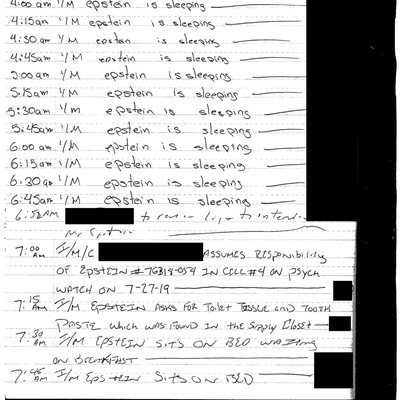 4:00 am I/M epstein is sleeping
4:15am I/M epstein is sleeping
4:30 am I/M epstein is sleeping
4:45am I/M epstein is sleeping
5:00am I/M epstein is sleeping
5:15am I/M epstein is sleeping
5:30am I/M epstein is sleeping
5:45am I/M epstein is sleeping
6:00 am I/M epstein is sleeping
6:15am I/M epstein is sleeping
6:30 am I/M epstein is sleeping
6:45am I/M epstein is sleeping
6:50AM to
7:00 AM I/M/C ASSUMES RESPONSIBILITY
OF EPSTEIN #76318-054 IN CELL #4 ON PSYCH
WATCH ON 7-27-19
7:15 AM I/M EPSTEIN ASKS FOR TOILET TISSUE AND TOOTH
PASTE WHICH WAS FOUND IN THE SUPPLY CLOSET
7:30 AM I/M EPSTEIN SITS ON BED WAITING
ON BREAKFAST
7:45 AM I/M EPSTEIN SITS ON BED